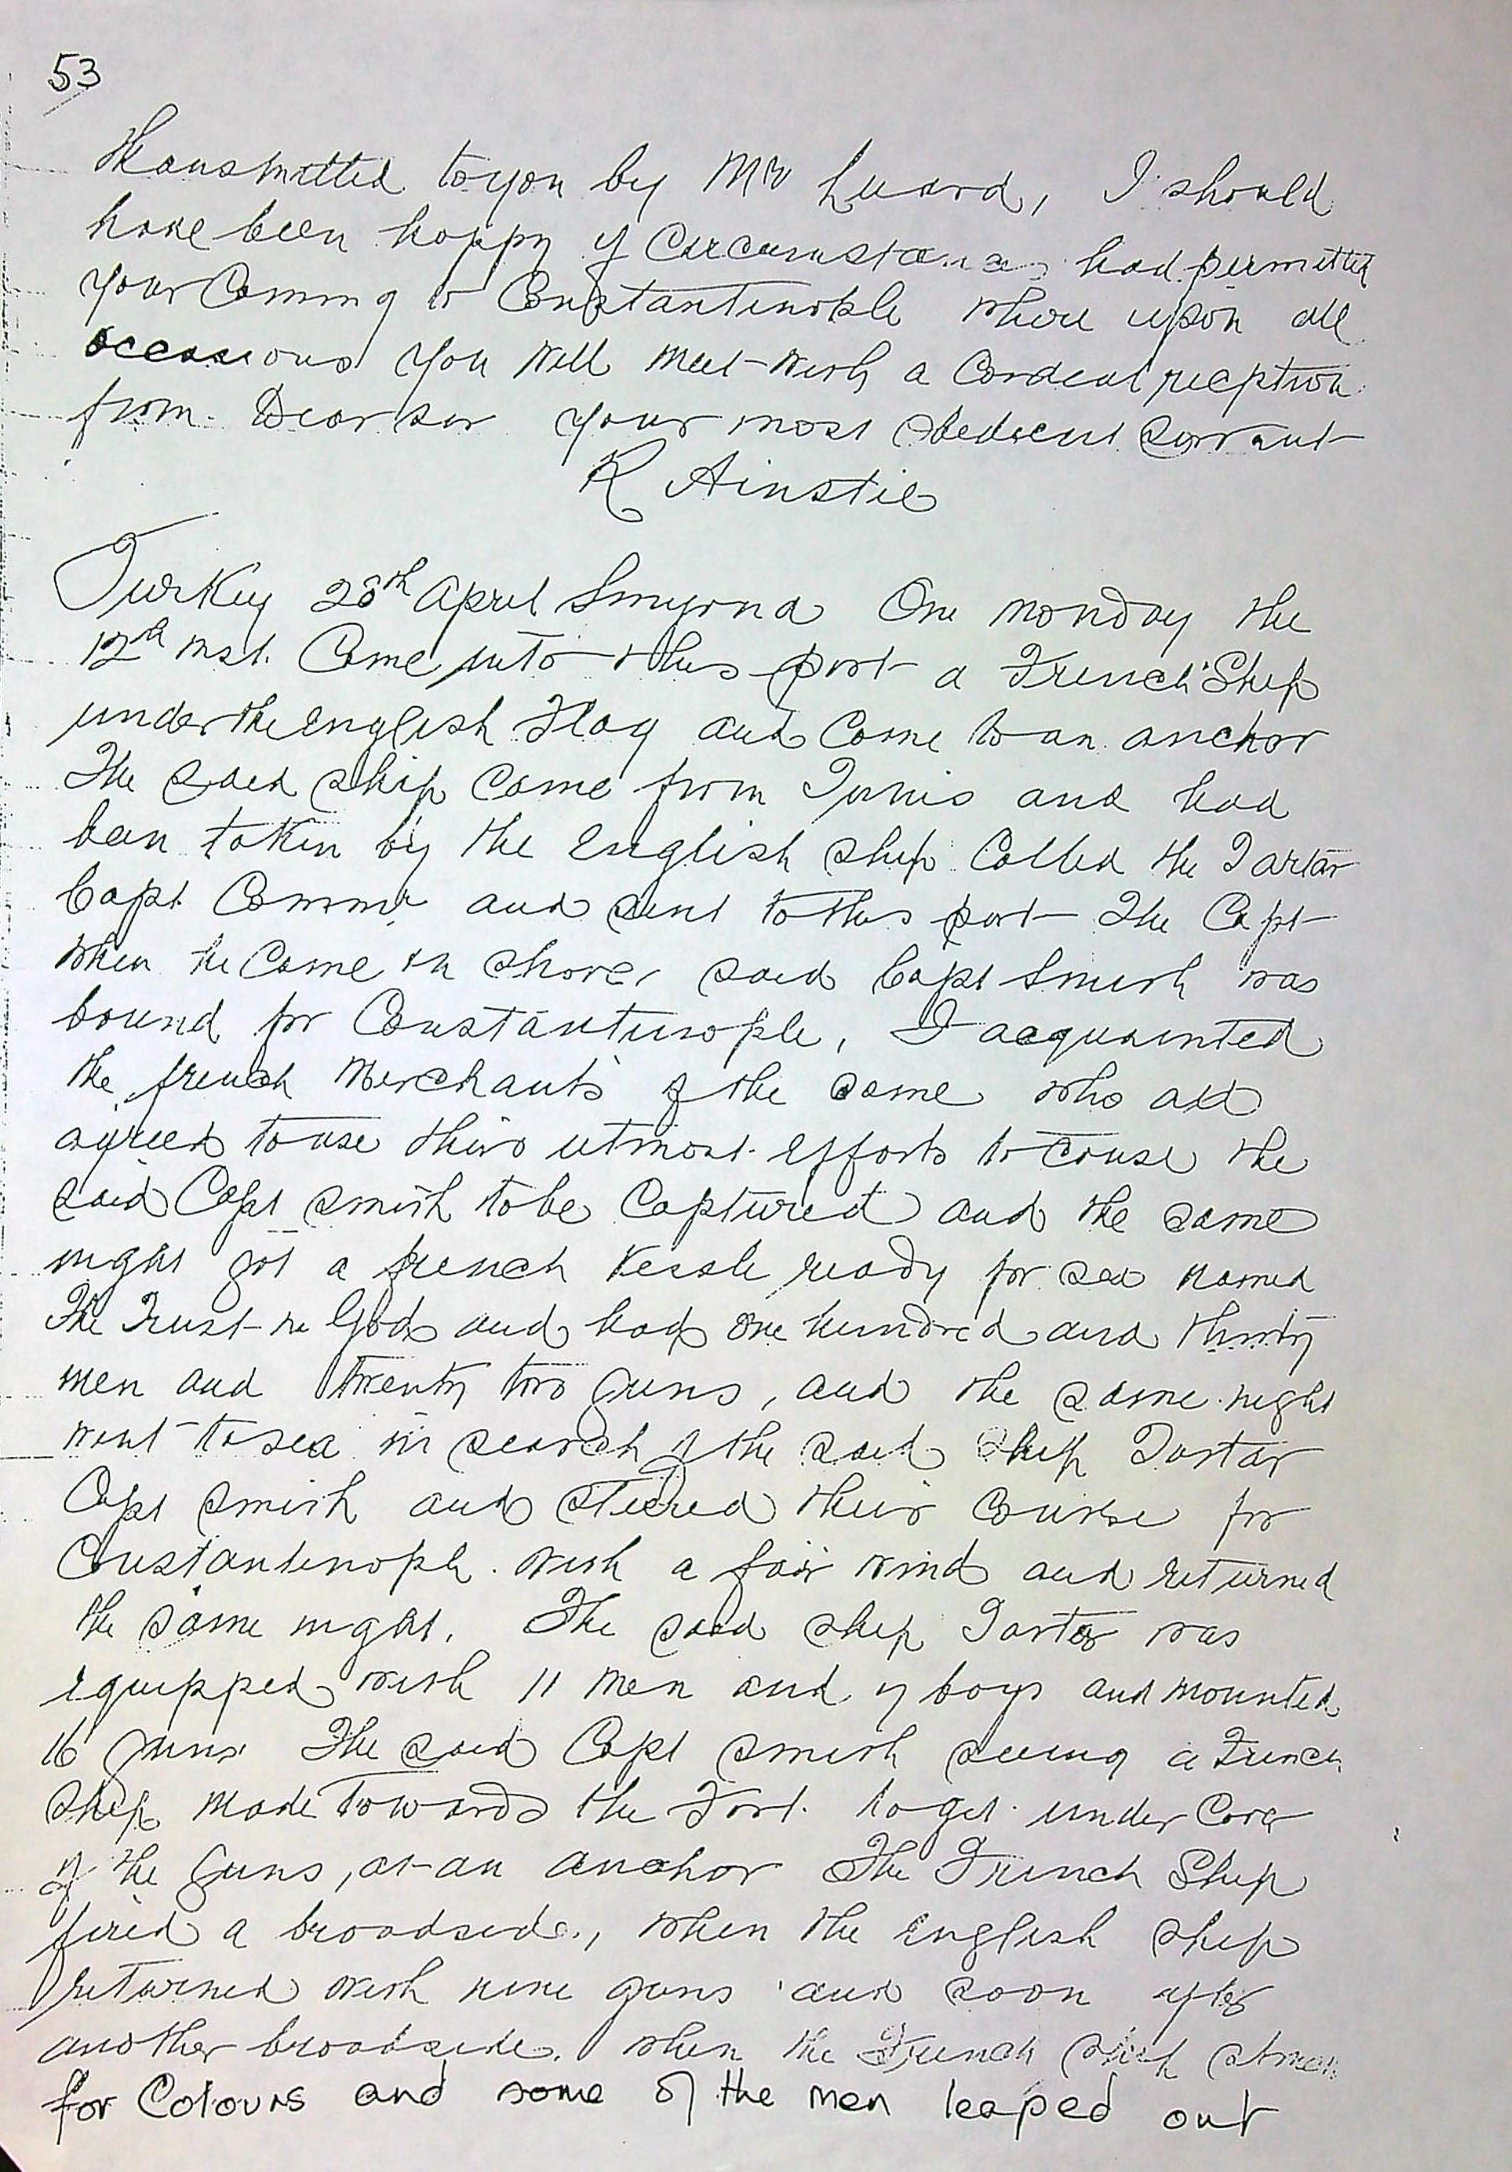 53
transmitted to you by Mr Luard, I should
have been happy if Circumstances had permitted
your Coming to Constantinople where upon all
occasions you will meet with a Cordeal reception
from Dear sir your most obedient servant
R Ainstie
Turkey 28th April Smyrna One monday the
12th inst. Came into this port a French Ship
under the English Flag and Came to an anchor
The said ship came from Tunis and had
been taken by the English ship Called the Tartar
Capt Comm and sent to this port The Capt
when he Came on shore, said Capt Smith was
bound for Constantinople, I acquainted
the french Merchants of the same who all
agreed to use their utmost efforts to cause the
said Capt smith to be Captured and the same
night got a french Vessle ready for sea named
The Trust in God and had one hundred and thirty
men and twenty two guns, and the same night
went to sea in search of the said Ship Tartar
Capt smith and steered their course for
Constantinople with a fair wind and returned
the same night. The said ship Tartar was
equipped with 11 men and 7 boys and mounted
16 guns The said Capt smith seeing a French
Ship made Towards the Fort to get under Cover
of the guns, at an anchor The French Ship
fired a broadside, when the English ship
returned with nine guns and soon after
another broadside. when the French ship struck
for Colours and some of the men leaped out